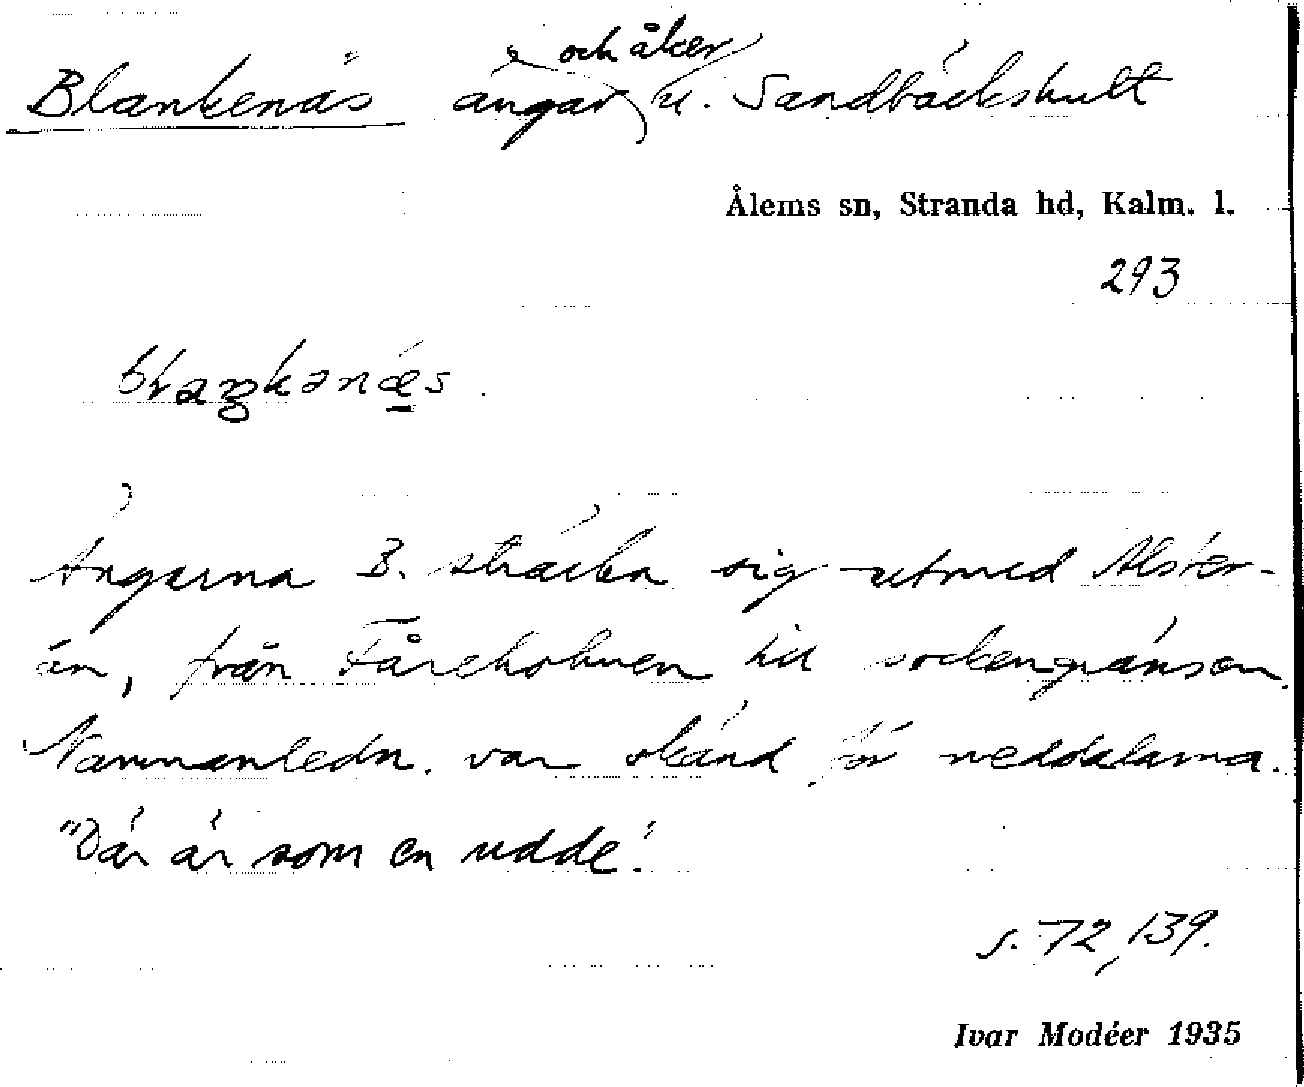 Blankenäs ängar och åker u. Sandbäckshult
Ålems sn, Stranda hd, Kalm. l.
293
blaŋkənæs.
Ängarna B. sträcka sig utmed Alster-
ån, från Fåreholmen till sockengränsen.
Namnanledn. var okänd för meddelarna.
"Där är som en udde."
s. 72, 139.
Ivar Modéer 1935